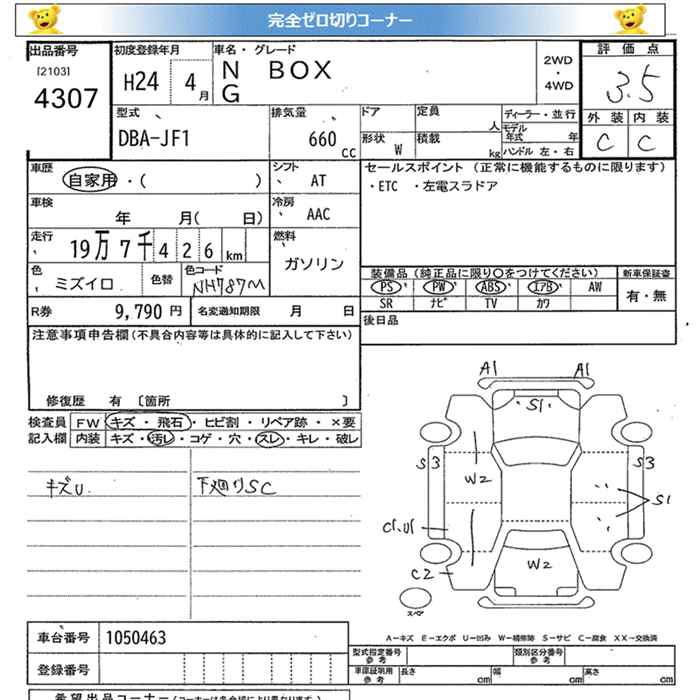 完全ゼロ切りコーナー
出品番号 初度登録年月 車名・グレード 評価点
[2103] 4307 H24 4月 N BOX G 2WD・4WD 3.5
外装 内装
C C
型式 排気量 ドア 定員 人 ディーラー・並行
DBA-JF1 660 CC 形状 W 積載 kg モデル年式 年 ハンドル 左・右
車歴 自家用・( ) シフト AT セールスポイント(正常に機能するものに限ります)
・ETC ・左電スラドア
車検 年 月( 日) 冷房 AAC
走行 19万7千426km 燃料 ガソリン
色 ミズイロ 色替 色コード NH787M
装備品(純正品に限り〇をつけてください) 新車保証書
PS PW ABS エアB AW 有・無
SR ナビ TV カワ
R券 9,790円 名変通知期限 月 日 後日品
注意事項申告欄(不具合内容等は具体的に記入して下さい)
修復歴 有〔箇所 〕
検査員記入欄 FW キズ・飛石・ヒビ割・リペア跡・×要
内装 キズ・汚レ・コゲ・穴・スレ・キレ・破レ
キズU 下廻りSC
A1 A1
S1
S3 S3
W2
S1
C1.U1
W2
C2
スペア
A-キズ E-エクボ U-凹み W-補修跡 S-サビ C-腐食 XX-交換済
車台番号 1050463
型式指定番号 参考 類別区分番号 参考
登録番号
車庫証明用 参考 長さ cm 幅 cm 高さ cm
希望出品コーナー(コーナーは各会場により異なります)